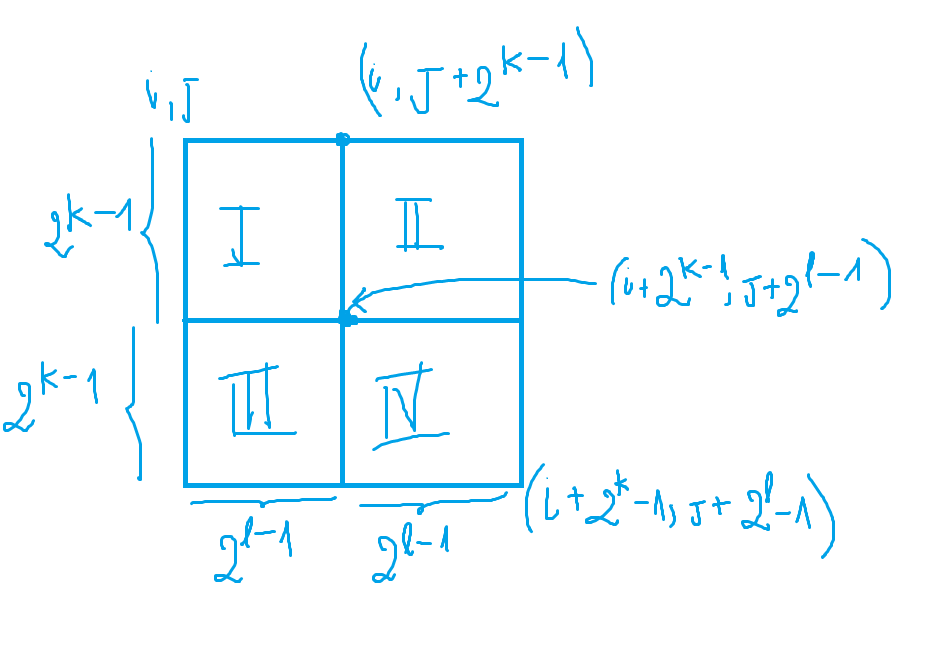 i,J
(i,J+2^{k-1})
2^{k-1}
I
II
(i+2^{k-1},J+2^{l-1})
2^{k-1}
III
IV
(i+2^k-1,J+2^l-1)
2^{l-1}
2^{l-1}